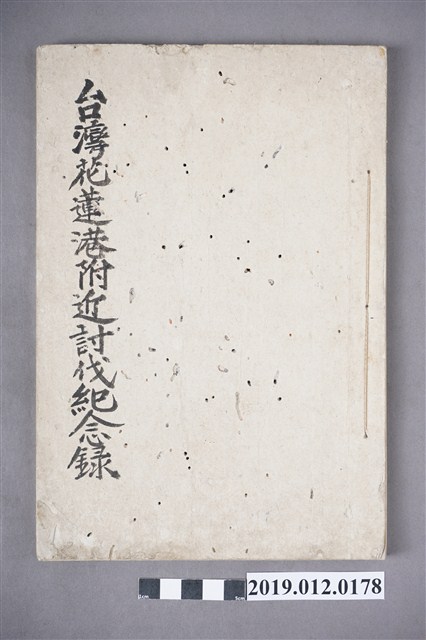 台灣花蓮港附近討伐紀念録
0cm 5cm
2019.012.0178